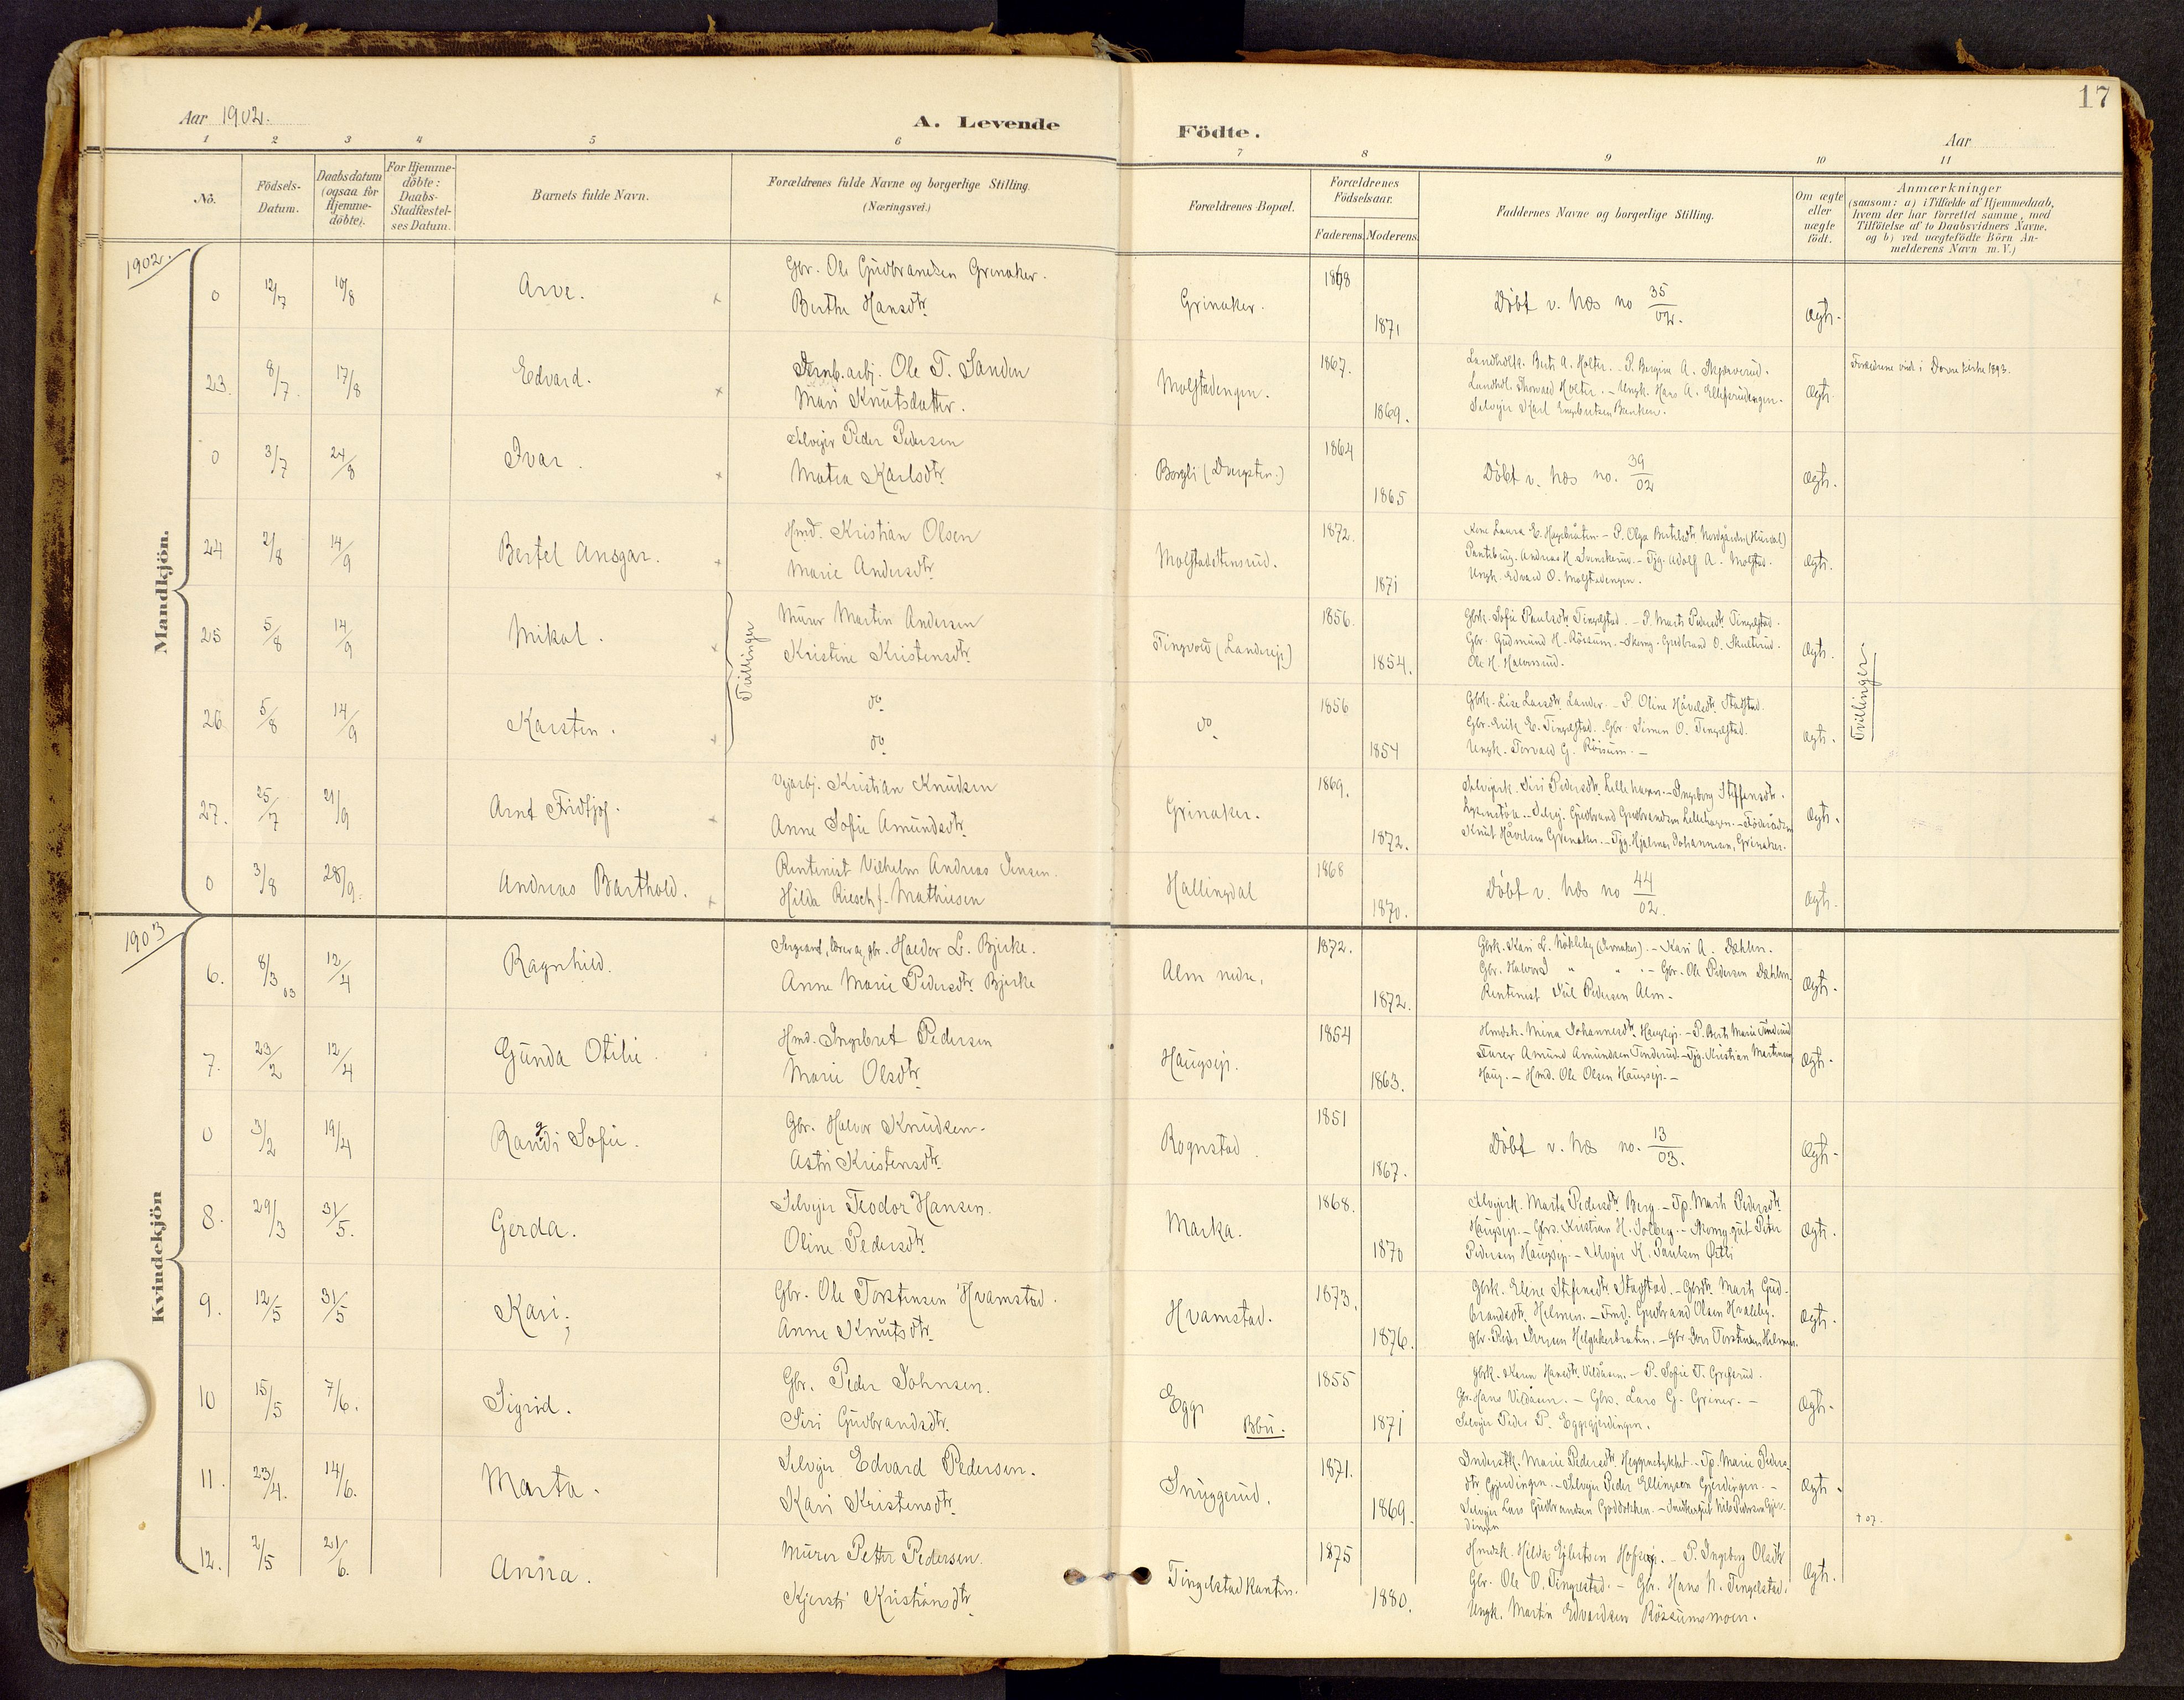 17
Aar 1902.
A. Levende
Födte.
Aar
1 2 3 4 5 6 7 8 9 10 11
No.
Födsels-Datum.
Daabsdatum (ogsaa for Hjemme-döbte).
For Hjemme-döbte: Daabs-Stadfæstel-ses Datum.
Barnets fulde Navn.
Forældrenes fulde Navne og borgerlige Stilling.
(Næringsvei.)
Forældrenes Bopæl.
Forældrenes Födselsaar.
Faderens. Moderens.
Faddernes Navne og borgerlige Stilling.
Om ægte eller uægte födt.
Anmærkninger
(saasom: a) i Tilfælde af Hjemmedaab,
hvem der har forrettet samme, med
Tilföielse af to Daabsvidners Navne,
og b) ved uægtefödte Börn An-
melderens Navn m. V.)
1902.
Mandkjön.
0 12/7 10/8 Arve. Gbr. Ole Gudbrandsen Grinaker.
Berthe Hansdtr. Grinaker. 1868 1871 Döbt v. Næs no 35/02. Ægte.
23. 8/7. 17/8 Edvard. Ole T. Sanden
Mari Knutsdatter. Molstadengen. 1867. 1869.
Landhol. Thorvald Holter. - Ungk. Hans A. Ellefsrudengen.
Selveier Karl Engebretsen Banken. Ægte.
0 3/7 24/8 Ivar. Selveier Peder Pedersen
Matea Karlsdtr. Borgli 1864 1865 Döbt v. Næs no. 39/02 Ægte.
24 2/8 14/9 Bertel Ansgar. Hmd. Kristian Olsen
Marie Andersdtr. Molstadstensrud. 1872. 1871
Ungk. Edvard O. Molstadengen. Ægte.
25 5/8 14/9 Mikal. Tvillinger Murer Martin Andersen
Kristine Kristensdtr. Tingvold 1856. 1854.
Gbrk. Sofie Paulsdtr. Tingelstad. - P. Marte Pedersdtr. Tingelstad.
Gbr. Gudmund H. Rössum. - Skomg. Gudbrand O. Skulterud.
Ole H. Halvorsrud. Ægte. Tvillinger.
26. 5/8 14/9 Karsten. do
do do 1856 1854
Gbrk. Lise Larsdtr. Lander. - P. Oline Håvelsdtr. Stadstad.
Gbr. Erik E. Tingelstad. Gbr. Simen O. Tingelstad.
Ungk. Torvald G. Röisum. - Ægte.
27. 25/7 21/9 Arnt Fridtjof. Vejarbj. Kristian Knudsen
Anne Sofie Amundsdtr. Grinaker. 1869. 1872.
Selvejerk. Siri Pedersdtr. Lillehagen. - Ingeborg Steffensdtr.
Gudbrand Gudbrandsen Lillehagen. - Föderådsm
Knut Håvelsen Grinaker. - Tjg. Hjalmar Johannesen, Grinaker. Ægte.
0 3/8 28/9. Andreas Barthold. Rentenist Vilhelm Andreas Jensen.
Hilda Riesch f. Mathiesen Hallingdal 1868 1870. Döbt v. Næs no 44/02. Ægte.
1903
Kvindekjön
6. 8/3 03 12/4 Ragnhild. Sergeant, lærer og gbr. Halvor L. Bjerke.
Anne Marie Pedersdtr. Bjerke Alm nedre, 1872. 1872.
Gbrk. Kari L. Nökleby - Kari A. Dæhlen.
Gbr. Halvor J " " - Gbr. Ole Pedersen Dæhlen.
Rentenist Jul Pedersen Alm. Ægte.
7. 23/2 12/4 Gunda Otilie. Hmd. Ingebret Pedersen
Marie Olsdtr. Haugseje. 1854 1863.
Hmdsk. Mina Johannesdtr. Haugseje. - P. Berte Marie Tinderud
Amund Amundsen Tinderud. - Tjg. Kristian Martinsen
Haug. - Hmd. Ole Olsen Haugseje. - Ægte.
0 3/2 19/4 Randi Sofie. Gbr. Halvor Knudsen.
Astri Kristensdtr. Rognstad. 1851 1867. Döbt v. Næs no. 13/03. Ægte.
8. 29/3 31/5. Gerda. Selvejer Teodor Hansen.
Oline Pedersdtr. Marka. 1868. 1870
Selvejerk. Marta Pedersdtr. Berg. - Tp. Marte Pedersdtr.
Haugseje. - Gbrs. Kristian H. Solberg. - Skomg.gut Peter
Pedersen Haugseje. - Selvejer K. Paulsen Ørtli Ægte.
9. 12/5 31/5 Kari; Gbr. Ole Torstensen Hvamstad.
Anne Knutsdtr. Hvamstad. 1873. 1876.
Gbrk. Eline Stefensdtr. Stadstad. - Gbrdtr. Marte Gud-
brandsdtr. Helmen. - Fmd. Gudbrand Olsen Hvaleby.
Gbr. Peder Iversen Helgakerbraten. - Gbr. Iver Torstensen Helmen. Ægte.
10 15/5 7/6. Sigrid. Gbr. Peder Johnsen.
Siri Gudbrandsdtr. Egge Bbu. 1855 1871
Gbrk. Karen Hansdtr. Vildåsen. - P. Sofie T. Grefsrud.
Gbr. Hans Vildåsen. - Gbrs. Lars G. Griner. -
Selvejer Peder P. Eggegjerdingen. Ægte.
11. 23/4. 14/6. Marta. Selvejer Edvard Pedersen.
Kari Kristensdtr. Snuggerud. 1871. 1869.
Inderstk. Marie Pedersdtr. Heggenstykket. - Tp. Marie Peders-
dtr. Gjerdingen. - Selvejer Peder Ellingsen Gjerdingen. -
Selvejer Lars Gudbrandsen - Snekkergut Nils Pedersen Gjer-
dingen Ægte. † 07.
12. 2/5 21/6. Anna. Murer Petter Pedersen.
Kjersti Kristiansdtr. Tingelstadkanten. 1875 1880.
Hmdsk. Hilda Eilertsen Hofseje. - P. Ingeborg Olsdtr
Gbr. Ole O. Tingelstad. - Gbr. Hans N. Tingelstad.
Ungk. Martin Edvardsen Rössumsmoen. Ægte.